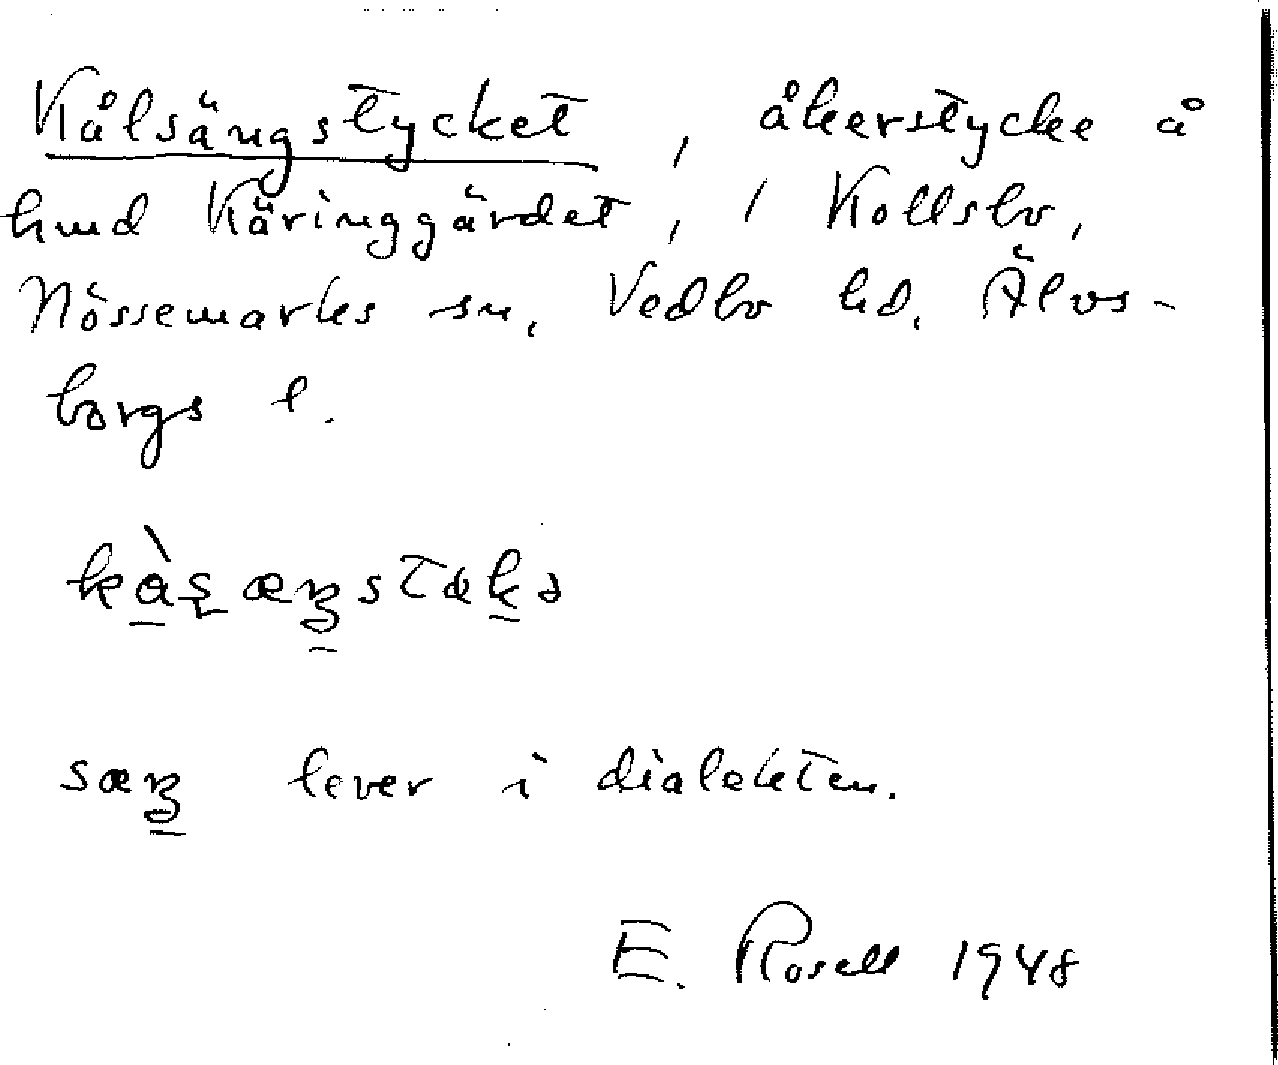 Kålsängstycket, åkerstycke å
hmd Käringgärdet, i Kollsbo,
Nössemarks sn, Vedbo hd. Älvs-
borgs l.
lever i dialekten.
E. Rosell 1948